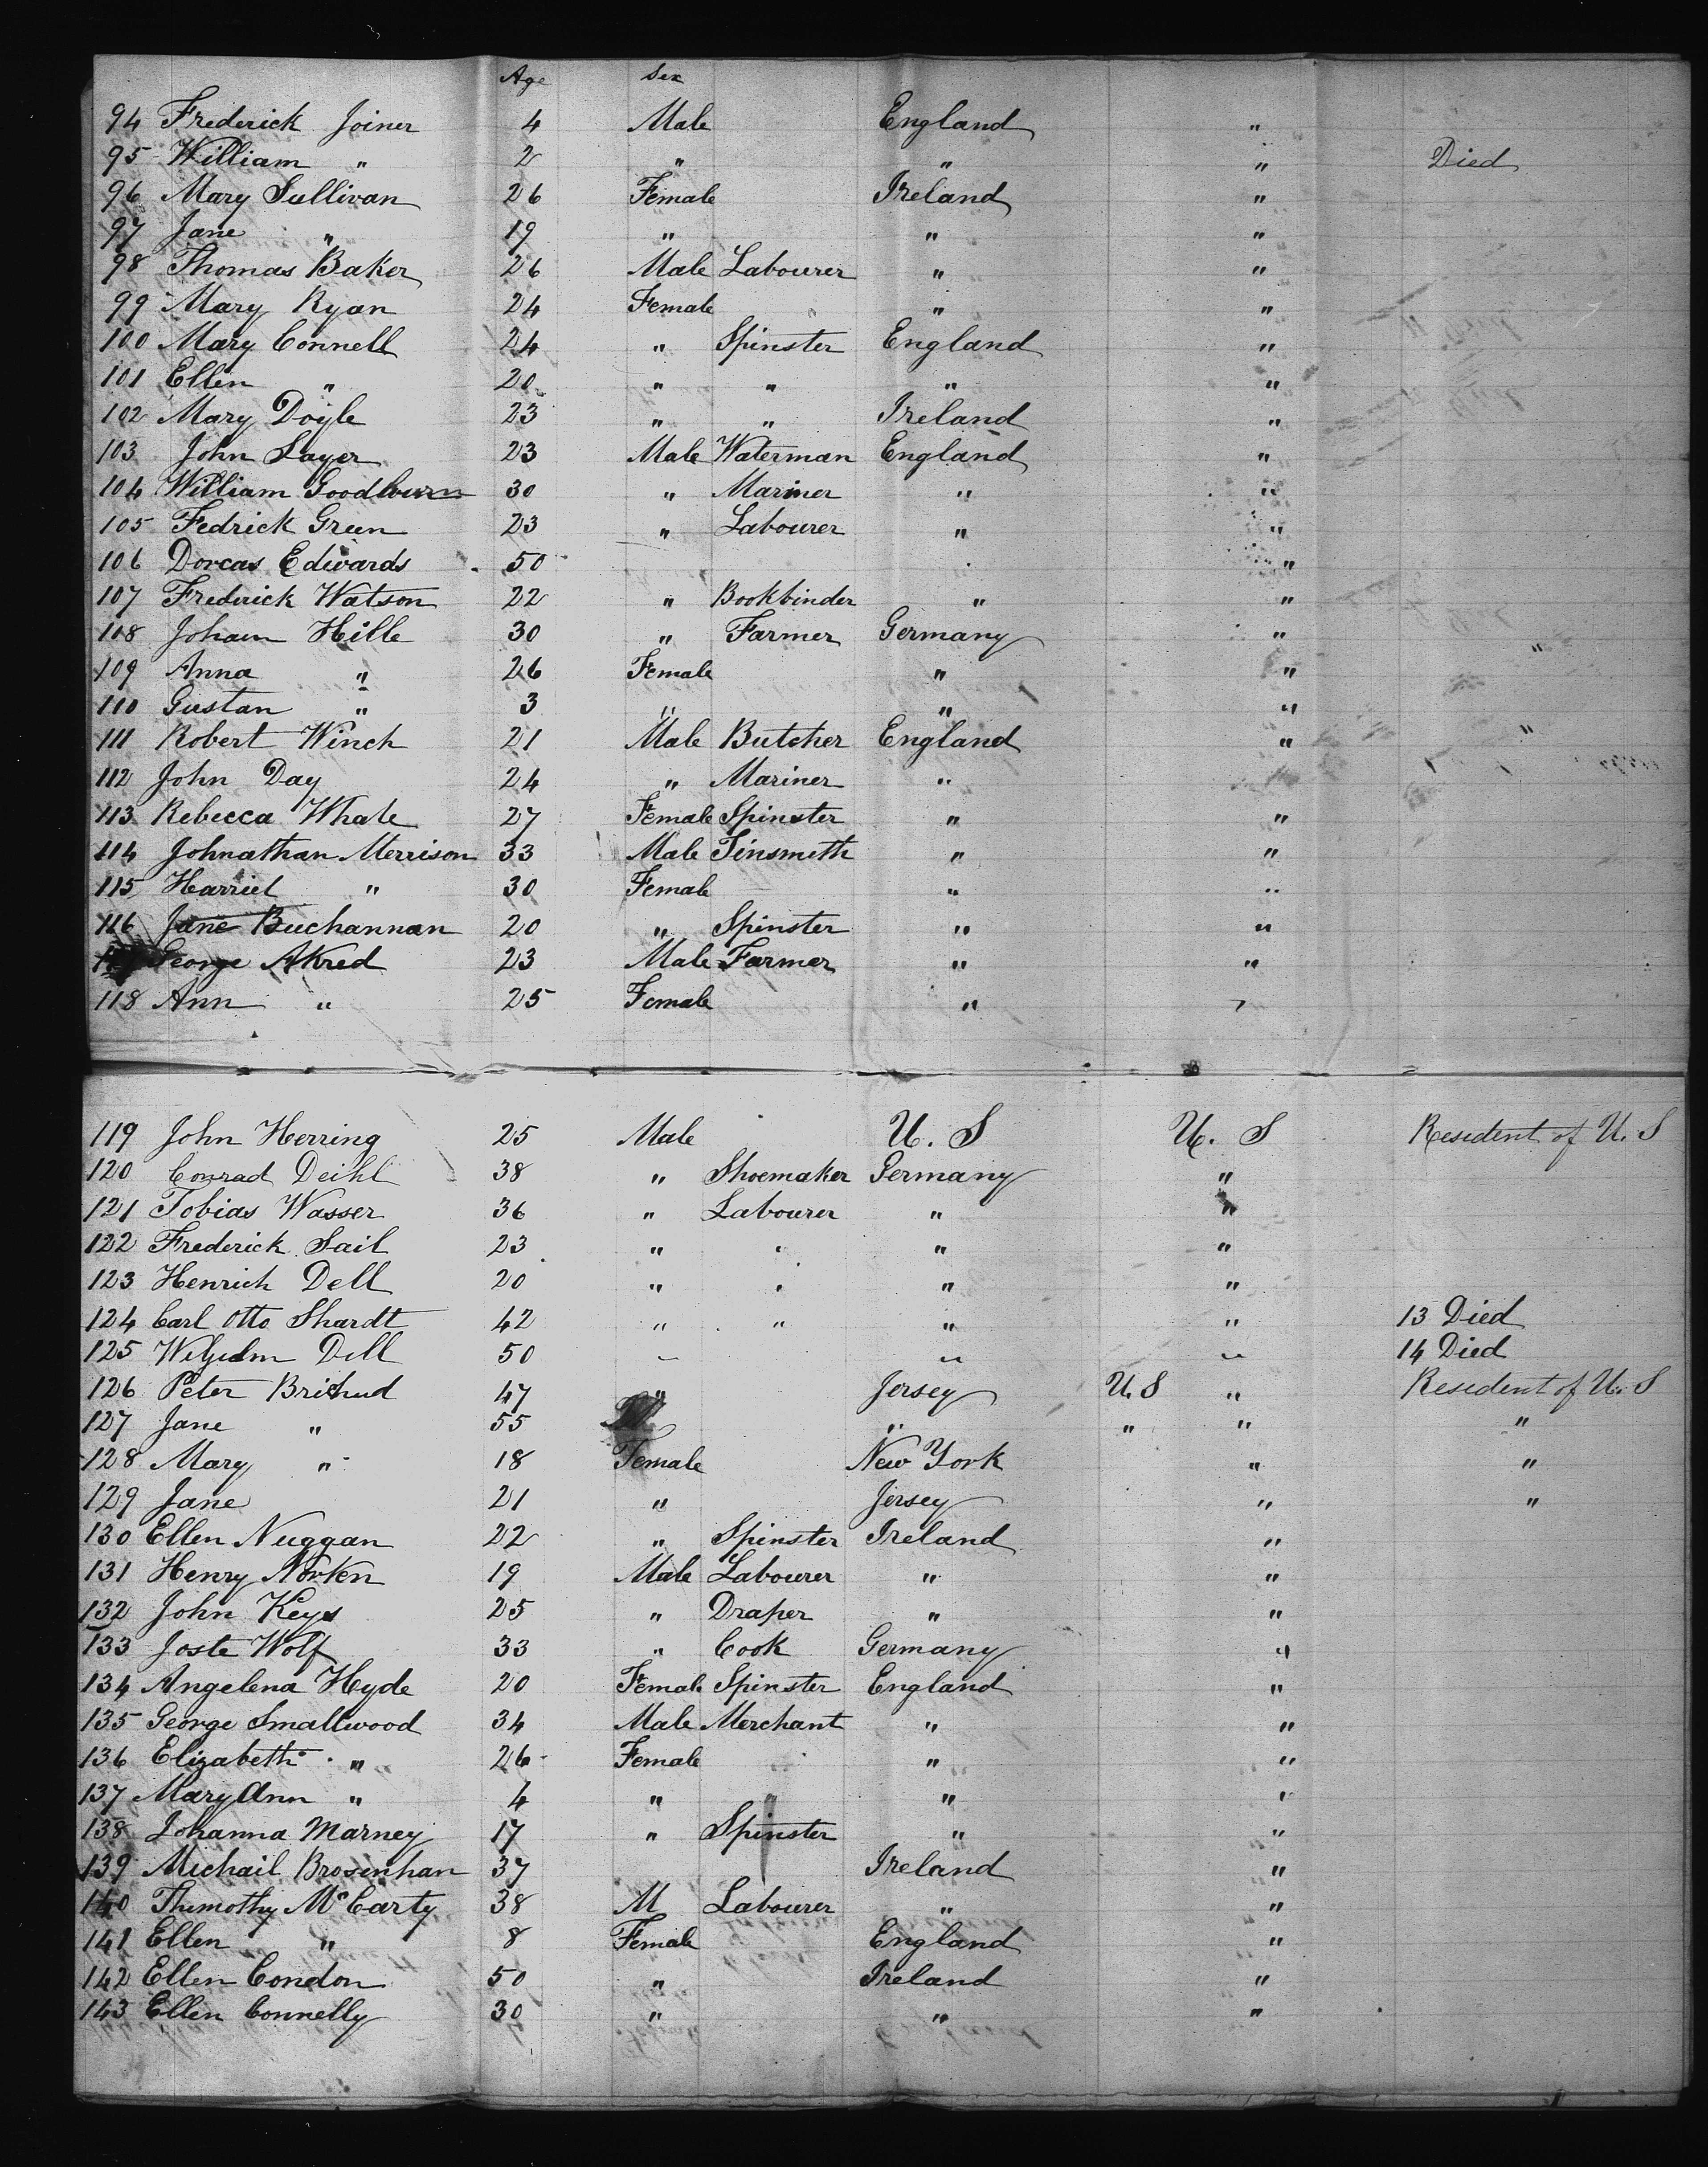 Age Sex
94 Frederick Joiner 4 Male England "
95 William " 2 " " " Died
96 Mary Sullivan 26 Female Ireland "
97 Jane " 19 " " "
98 Thomas Baker 26 Male Labourer " "
99 Mary Ryan 24 Female " "
100 Mary Connell 24 " Spinster England "
101 Ellen " 20 " " " "
102 Mary Doyle 23 " " Ireland "
103 John Sayer 23 Male Waterman England "
104 William Goodburn 30 " Mariner " "
105 Fedrick Green 23 " Labourer " "
106 Dorcas Edwards 50 "
107 Frederick Watson 22 " Bookbinder " "
108 Johann Hille 30 " Farmer Germany "
109 Anna " 26 Female " "
110 Gustan " 3 " " "
111 Robert Winch 21 Male Butcher England "
112 John Day 24 " Mariner "
113 Rebecca Whale 27 Female Spinster " "
114 Johnathan Merrison 33 Male Tinsmith " "
115 Harriet " 30 Female " "
116 Jane Buchannan 20 " Spinster " "
George Akred 23 Male Farmer " "
118 Ann " 25 Female " "
119 John Herring 25 Male U. S U. S Resident of U. S
120 Conrad Deihl 38 " Shoemaker Germany "
121 Tobias Wasser 36 " Labourer " "
122 Frederick Sail 23 " " " "
123 Henrich Dell 20 " " " "
124 Carl Otto Shardt 42 " " " " 13 Died
125 Dell 50 " " " 14 Died
126 Peter 47 " Jersey U.S " Resident of U. S
127 Jane " 55 " " " "
128 Mary " 18 Female New York " "
129 Jane 21 " Jersey " "
130 Ellen Nuggan 22 " Spinster Ireland "
131 Henry Norken 19 Male Labourer " "
132 John Keys 25 " Draper " "
133 Joste Wolf 33 " Cook Germany "
134 Angelena Hyde 20 Female Spinster England "
135 George Smallwood 34 Male Merchant " "
136 Elizabeth " 26 Female " "
137 Mary Ann " 4 " " " "
138 Johanna Marney 17 " Spinster " "
139 Michail Brosenhan 37 Ireland "
140 Thimothy McCarty 38 M Labourer " "
141 Ellen " 8 Female England "
142 Ellen Condon 50 " Ireland "
143 Ellen Connelly 30 " " "